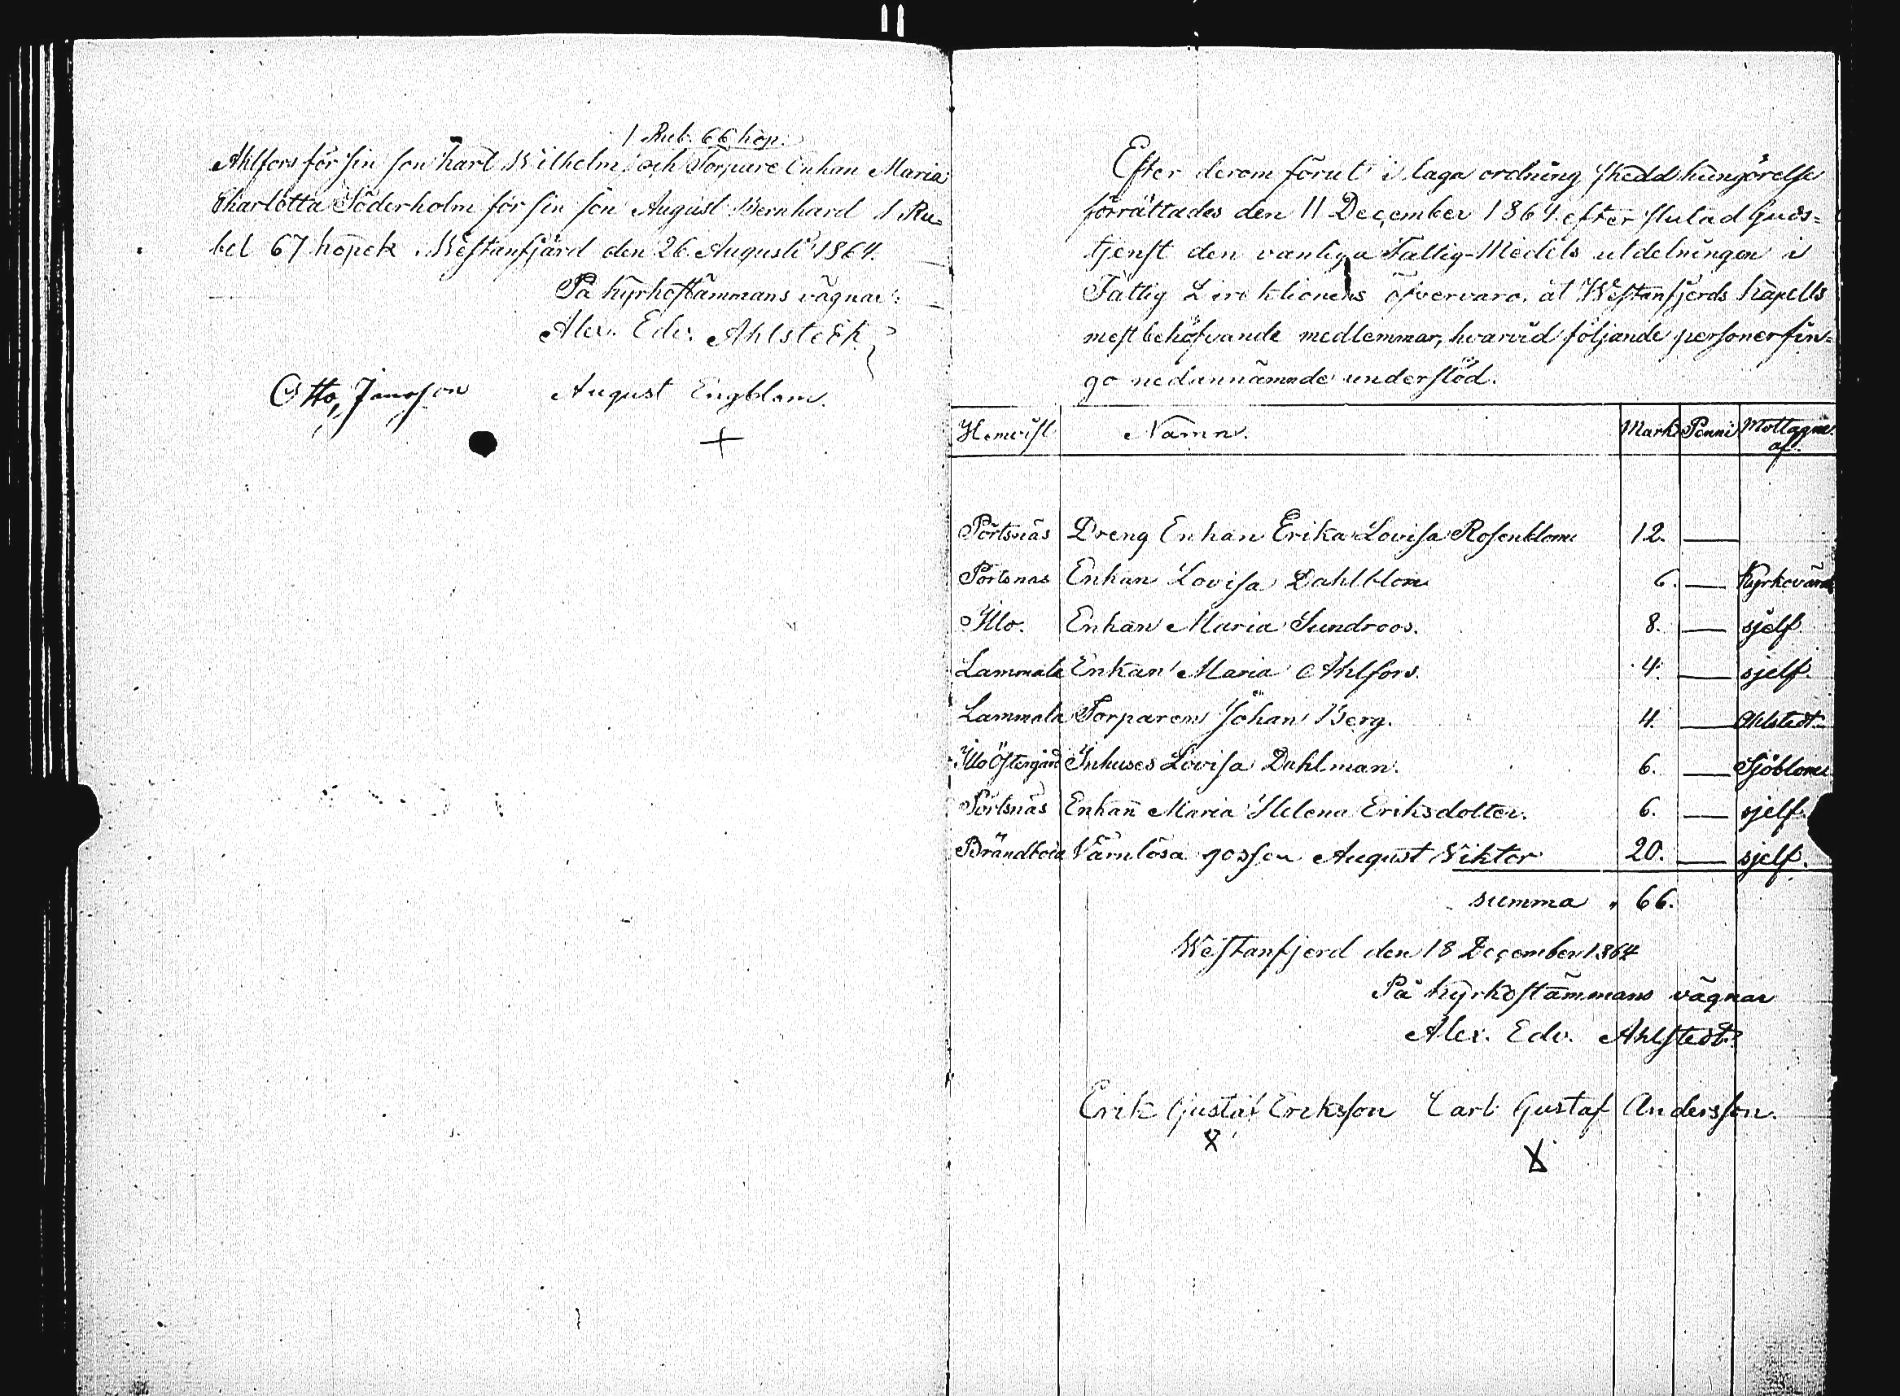 1 Rub. 66 kop.
Ahlfors för sin son Karl Wilhelm och Torpare Enkan Maria
Charlotta Söderholm för sin son August Bernhard 1 Ru-
bel 67 kopek. Westanfjärd den 26 Augusti 1864.
På kyrkostämmans vägnar:
Alex. Edv. Ahlstedt
Otto Jansson August Engblom.
+
Efter derom förut i laga ordning skedd kungörelse
förrättades den 11 December 1864 efter slutad Guds-
tjenst den vanliga Fattig-Medels utdelningen i
Fattig Direktionens öfvervaro, åt Westanfjerds Kapells
mest behöfvande medlemmar, hvarvid följande personer fin-
go nedannämnde understöd.
Hemvist Namn. Mark Penni Mottagne af.
Pörtsnäs Dreng Enkan Erika Lovisa Rosenblom 12. —
Pörtsnäs Enkan Lovisa Dahlblom 6. — Kyrkovärd
Illo. Enkan Maria Sundroos. 8. — sjelf.
Lammala Enkan Maria Ahlfors. 4. — sjelf.
Lammala Torparen Johan Berg. 4. — Ahlstedt
Illo Östergård Inhuses Lovisa Dahlman. 6. — Sjöblom
Pörtsnäs Enkan Maria Helena Eriksdotter. 6. — sjelf.
Brändboda Värnlösa gossen August Viktor 20. — sjelf.
summa 66.
Westanfjerd den 18 December 1864
På kyrkostämmans vägnar
Alex. Edv. Ahlstedt.
Erik Gustaf Eriksson Carl Gustaf Andersson.
X X